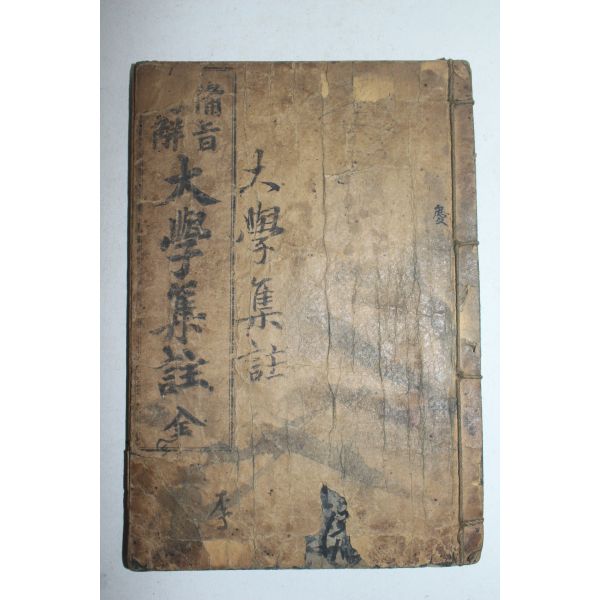 慶
大學集註
備旨
解
大學集註全
李